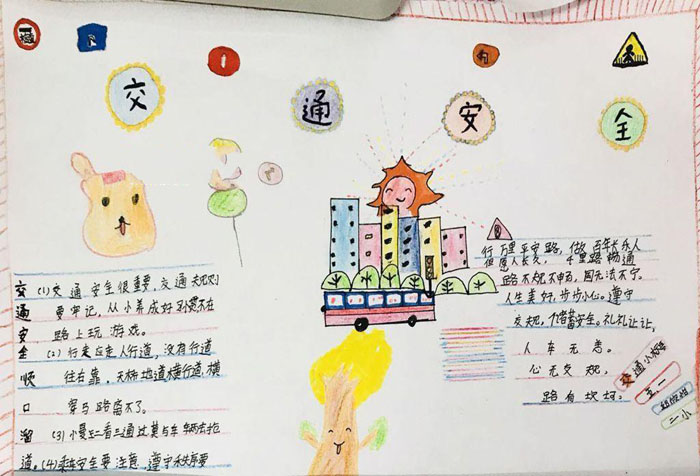 交 通 安 全
交通安全顺口溜
(1)交通安全很重要,交通规则
要牢记,从小养成好习惯不在
路上玩游戏。
(2)行走应走人行道,没有行道
往右靠,天桥地道横行道,横
穿马路
不了。
(3)小
二看三通过莫与车辆去抢
道。(4)乘车安全要注意,遵守秩序要
行万里平安路,做百年长乐人
但愿人长久,千里路畅通
路不规不畅,国无法不宁
人生美好,步步小心。遵守
交规,储蓄安全。礼礼让让,
人车无恙。
心无交规,
路有坎坷。
交通小报
五一
二小